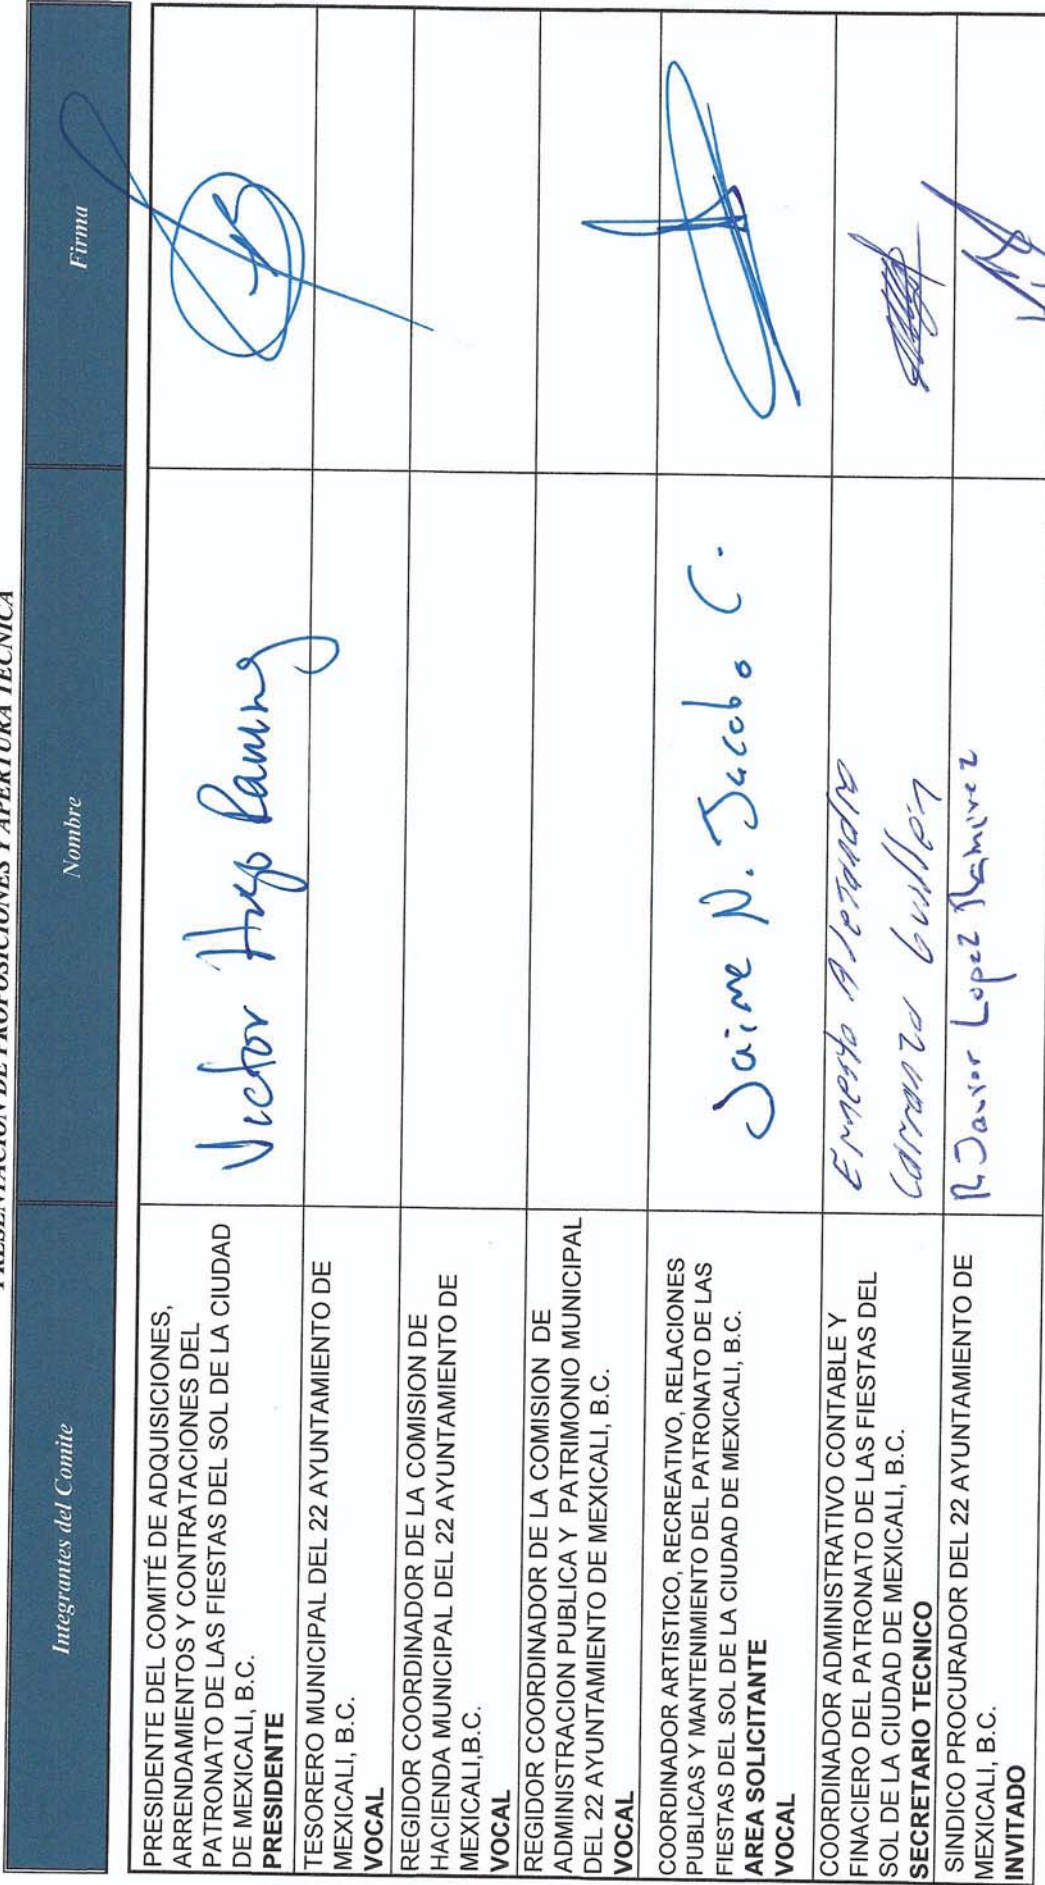 PRESENTACION DE PROPOSICIONES Y APERTURA TECNICA
Integrantes del Comite
Nombre
Firma
PRESIDENTE DEL COMITÉ DE ADQUISICIONES,
ARRENDAMIENTOS Y CONTRATACIONES DEL
PATRONATO DE LAS FIESTAS DEL SOL DE LA CIUDAD
DE MEXICALI, B.C.
PRESIDENTE
Victor Hugo Ramirez
TESORERO MUNICIPAL DEL 22 AYUNTAMIENTO DE
MEXICALI, B.C.
VOCAL
REGIDOR COORDINADOR DE LA COMISION DE
HACIENDA MUNICIPAL DEL 22 AYUNTAMIENTO DE
MEXICALI,B.C.
VOCAL
REGIDOR COORDINADOR DE LA COMISION DE
ADMINISTRACION PUBLICA Y PATRIMONIO MUNICIPAL
DEL 22 AYUNTAMIENTO DE MEXICALI, B.C.
VOCAL
COORDINADOR ARTISTICO, RECREATIVO, RELACIONES
PUBLICAS Y MANTENIMIENTO DEL PATRONATO DE LAS
FIESTAS DEL SOL DE LA CIUDAD DE MEXICALI, B.C.
AREA SOLICITANTE
VOCAL
Jaime N. Jacobo C.
COORDINADOR ADMINISTRATIVO CONTABLE Y
FINACIERO DEL PATRONATO DE LAS FIESTAS DEL
SOL DE LA CIUDAD DE MEXICALI, B.C.
SECRETARIO TECNICO
Ernesto Alejandro
Carranza Guillén
SINDICO PROCURADOR DEL 22 AYUNTAMIENTO DE
MEXICALI, B.C.
INVITADO
R. Javier Lopez Ramirez